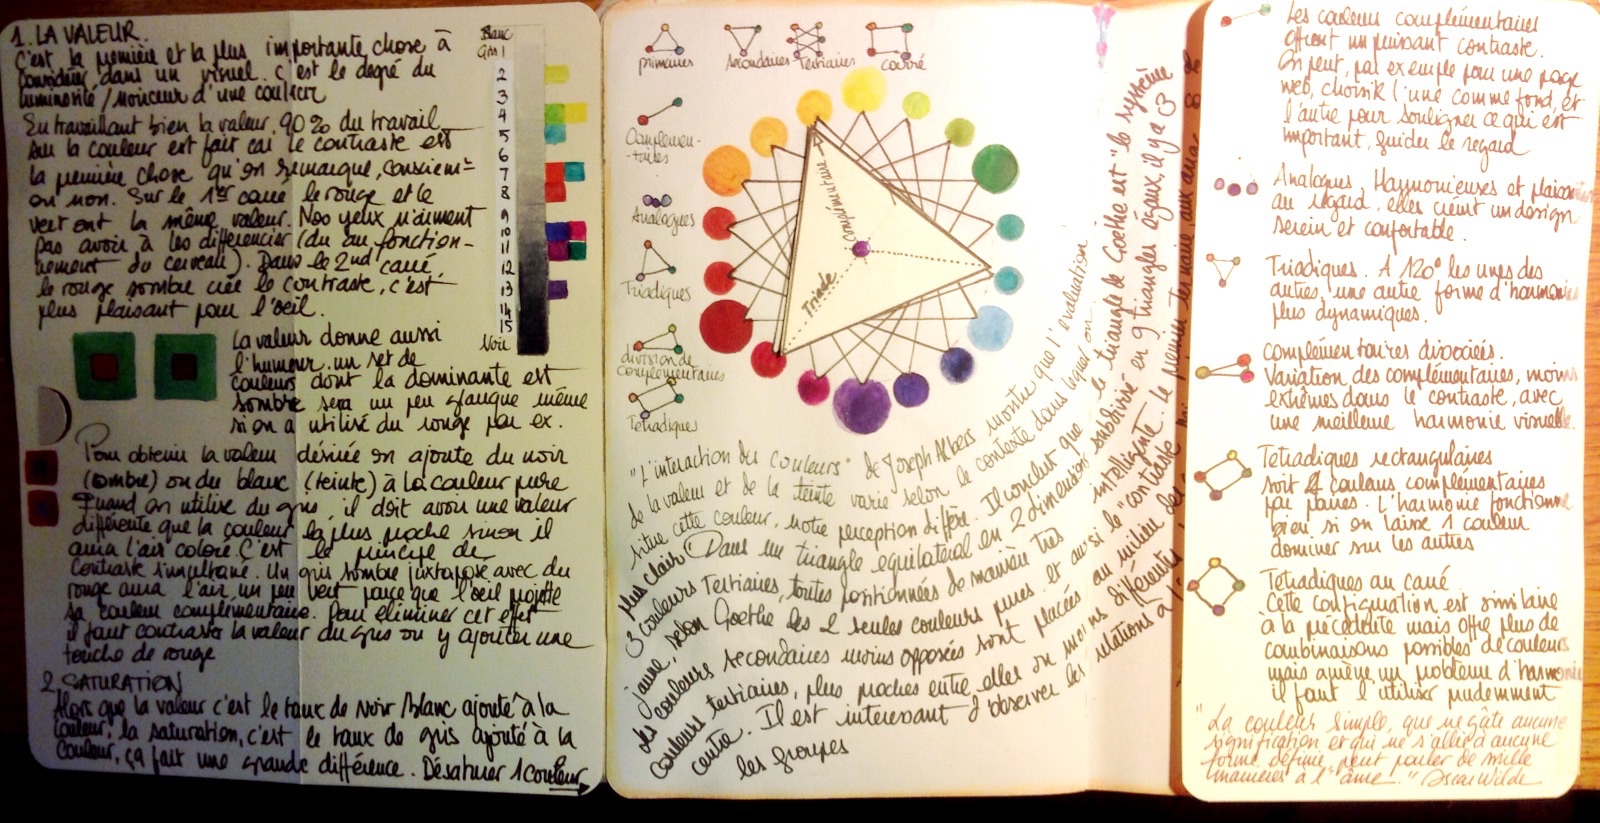 1. LA VALEUR.
C'est la première et la plus importante chose à
considérer dans un visuel. C'est le degré du
luminosité/noirceur d'une couleur
En travaillant bien la valeur, 90% du travail
sur la couleur est fait car le contraste est
la première chose qu'on remarque, consciem-
ou non. Sur le 1er carré le rouge et le
vert ont la même valeur. Nos yeux n'aiment
pas avoir à les différencier (du au fonction-
nement du cerveau). Dans le 2nd carré,
le rouge sombre crée le contraste, c'est
plus plaisant pour l'oeil.
Blanc
GM 1
2
3
4
5
6
7
8
9
10
11
12
13
14
15
Noir
La valeur donne aussi
l'humeur. un set de
couleurs dont la dominante est
sombre sera un peu glauque même
si on a utilisé du rouge par ex.
Pour obtenir la valeur désirée on ajoute du noir
(ombre) ou du blanc (teinte) à la couleur pure
Quand on utilise du gris, il doit avoir une valeur
différente que la couleur la plus proche sinon il
aura l'air coloré. C'est le principe de
contraste simultané. Un gris sombre juxtaposé avec du
rouge aura l'air un peu vert parce que l'oeil projette
sa couleur complémentaire. Pour éliminer cet effet
il faut contraster la valeur du gris ou y ajouter une
touche de rouge
2. SATURATION
Alors que la valeur c'est le taux de noir/blanc ajouté à la
couleur, la saturation, c'est le taux de gris ajouté à la
couleur, ça fait une grande différence. Désaturer 1 couleur
primaires
secondaires
Tertiaires
carré
Complémen-
-taires
Analogues
Triadiques
division de
complémentaires
Tetradiques
Complémentaire
Triade
"L'interaction des couleurs" de Joseph Albers montre que l'evaluation
de la valeur et de la teinte varie selon le contexte dans lequel on
situe cette couleur, notre perception diffère. Il conclut que le triangle de Goethe est "le système
plus clair" Dans un triangle equilatéral en 2 dimension subdivisé en 9 triangles égaux, il y a 3
3 couleurs Tertiaires, toutes positionnées de manière très intelligente. le
jaune, selon Goethe les 2 seules couleurs pures. et aussi le "contraste
Les couleurs secondaires moins opposées sont placées au milieu des
couleurs tertiaires, plus proches entre elles ou moins différentes
centre. Il est interessant d'observer les relations à
les groupes
Les couleurs complémentaires
offrent un puissant contraste.
On peut, par exemple pour une page
web, choisir l'une comme fond, et
l'autre pour souligner ce qui est
important, guider le regard
Analogues. Harmonieuses et plaisantes
au regard. elles créent un design
serein et confortable.
Triadiques. A 120° les unes des
autres, une autre forme d'harmonie
plus dynamiques.
complémentaires divociées.
Variation des complémentaires, moins
extrêmes dans le contraste, avec
une meilleure harmonie visuelle.
Tetradiques rectangulaires
soit 4 couleurs complémentaires
par paires. L'harmonie fonctionne
bien si on laisse 1 couleur
dominer sur les autres
Tetradiques au carré
Cette configuration est similaire
à la précédente mais offre plus de
combinaisons possibles de couleurs
mais amène un problème d'harmonie
il faut l'utiliser prudemment
"La couleur simple, que ne gâte aucune
signification et qui ne s'allie à aucune
forme définie, peut parler de mille
manières à l'âme." Oscar Wilde